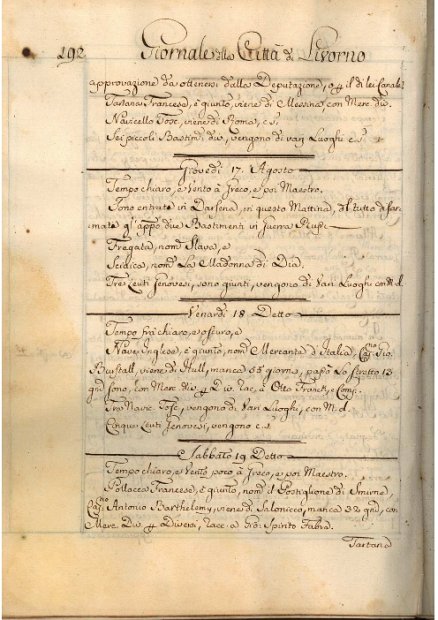 292 Giornale della Città di Livorno
approvazione da ottenersi dalla Deputazione, o
Tartana Francese, è giunto, viene di Messina con Merc. div.
Navicello Tosc. viene di Roma, c.s.
Sei piccoli Bastim. div. vengono di varj Luoghi c.s.
Giovedì 17. Agosto
Tempo chiaro, e Vento à Greco, e poi Maestro.
Sono entrate in Darsena, in questa Mattina, del tutto disar
mate gl'appo due Bastimenti in Guerra Russi
Fregata, nom. Slava, e
nom. La Madonna di Dio.
Tre Leuti Genovesi, sono giunti, vengono di Vari Luoghi con M. d.
Venerdì 18 Detto
Tempo frà chiaro, e oscuro, e
Nave Inglese, è giunto, nom. Mercante d'Italia, Cap.no Gio.
viene di Hull, manca 55 giorni, passò Lo Stretto 13
gni sono, con Merc. Div. p. Div. racc. à Otto Franck, e Comp.
Tre Navic. Tosc. vengono di Vari Luoghi, con M. d.
Cinque Leuti Genovesi, vengono c.s.
Sabbato 19 Detto
Tempo chiaro, e Vento poco à Greco, e poi Maestro.
Pollacca Francese, è giunto, nom. il Postiglione di Smirne,
Cap.no Antonio Barthelemy, viene di Salonicco, manca 32 gni, con
Merc. Div. p. Diversi, racc. a Gio: Spirito Fabre.
Tartana